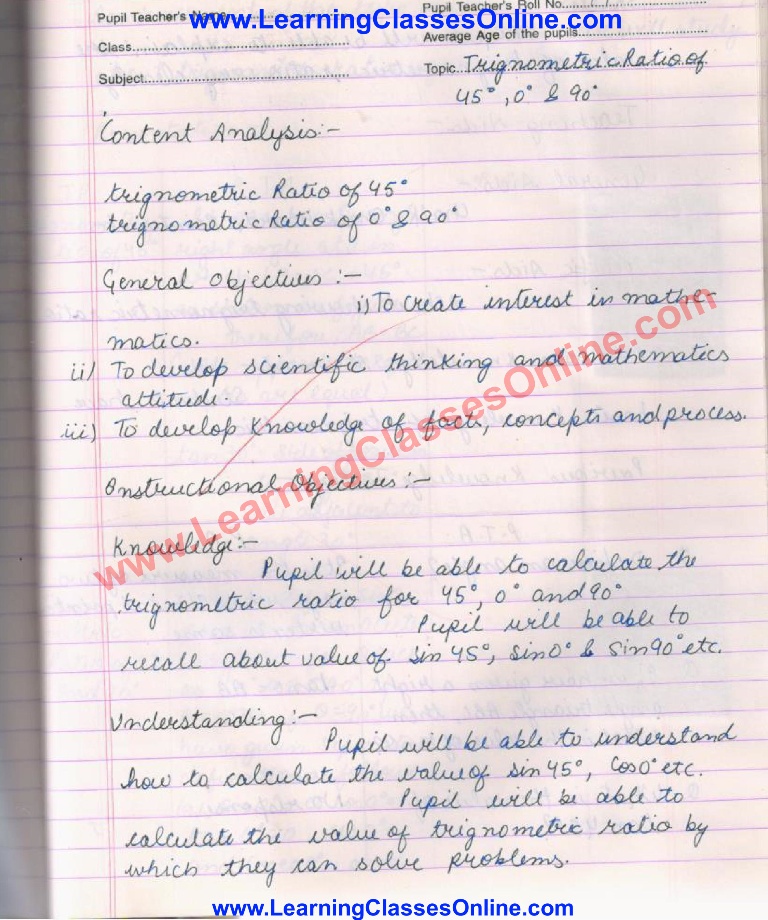 www.LearningClassesOnline.com
Pupil Teacher's Name
Pupil Teacher's Roll No.
Class
Average Age of the pupils
Subject
Topic.. Trignometric Ratio of
45°, 0° & 90°
Content Analysis:-
trignometric Ratio of 45°
trignometric Ratio of 0° & 90°
General Objectives :-
i) To create interest in mathe-
matics.
ii) To develop scientific thinking and mathematics
attitude.
iii) To develop Knowledge of facts, concepts and process.
Instructional Objectives :-
Knowledge:-
Pupil will be able to calculate the
trignometric ratio for 45°, 0° and 90°
Pupil will be able to
recall about value of Sin 45°, Sin0° & Sin90° etc.
Understanding:-
Pupil will be able to understand
how to calculate the value of sin 45°, Cos0° etc.
Pupil will be able to
calculate the value of trignometric ratio by
which they can solve problems.
www.LearningClassesOnline.com
www.LearningClassesOnline.com